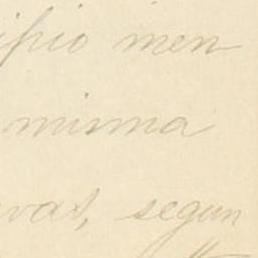 ipio men
misma
vas, segun